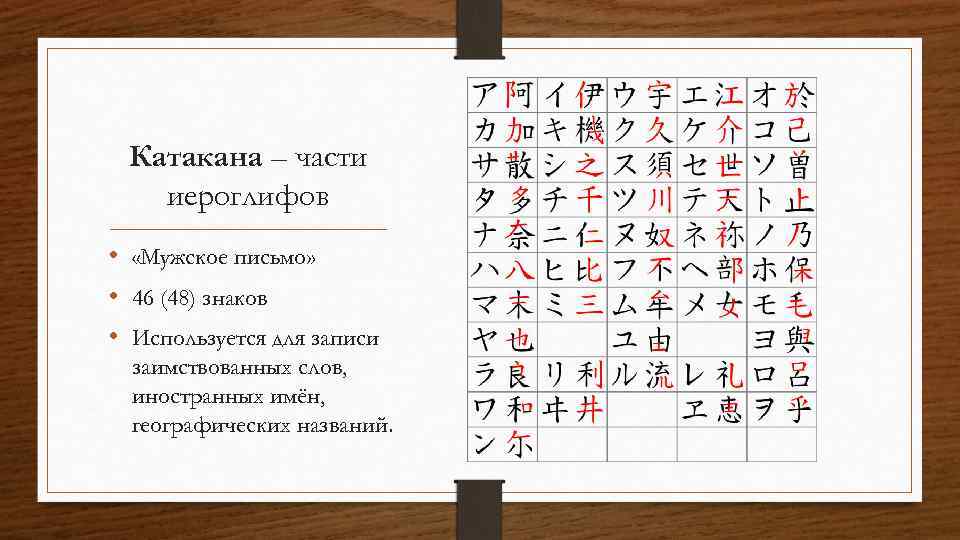 Катакана – части
иероглифов
• «Мужское письмо»
• 46 (48) знаков
• Используется для записи
заимствованных слов,
иностранных имён,
географических названий.
ア阿 イ伊 ウ宇 エ江 オ於
カ加 キ機 ク久 ケ介 コ己
サ散 シ之 ス須 セ世 ソ曽
タ多 チ千 ツ川 テ天 ト止
ナ奈 ニ仁 ヌ奴 ネ祢 ノ乃
ハ八 ヒ比 フ不 ヘ部 ホ保
マ末 ミ三 ム牟 メ女 モ毛
ヤ也 ユ由 ヨ與
ラ良 リ利 ル流 レ礼 ロ呂
ワ和 ヰ井 ヱ恵 ヲ乎
ン尓